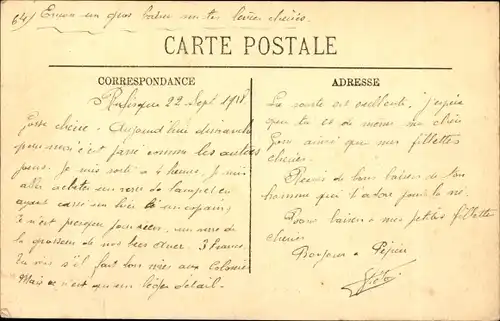 64) Encore un gros baiser sur tes lèvres chéries.
CARTE POSTALE
CORRESPONDANCE
22 Sept 1918
Gosse chérie - Aujourd'hui dimanche
pour moi c'est passé comme les autres
jours. Je suis sorti à 4 heures. Je suis
allé acheter un verre de lampe
ayant cassé un hier à un copain,
Ce n'est presque pour rien, un verre de
la grosseur de nos becs Auer. 3 francs.
Tu vois s'il fait bon vivre aux Colonies
Mais ce n'est qu'un léger détail.
ADRESSE
La santé est excellente, j'espère
que tu es de même ma chérie
Gosse ainsi que mes fillettes
chéries.
Reçois de bons baisers de ton
homme qui t'adore pour la vie.
Bons baisers à mes petites fillettes
chéries
Bonjour à Pépère